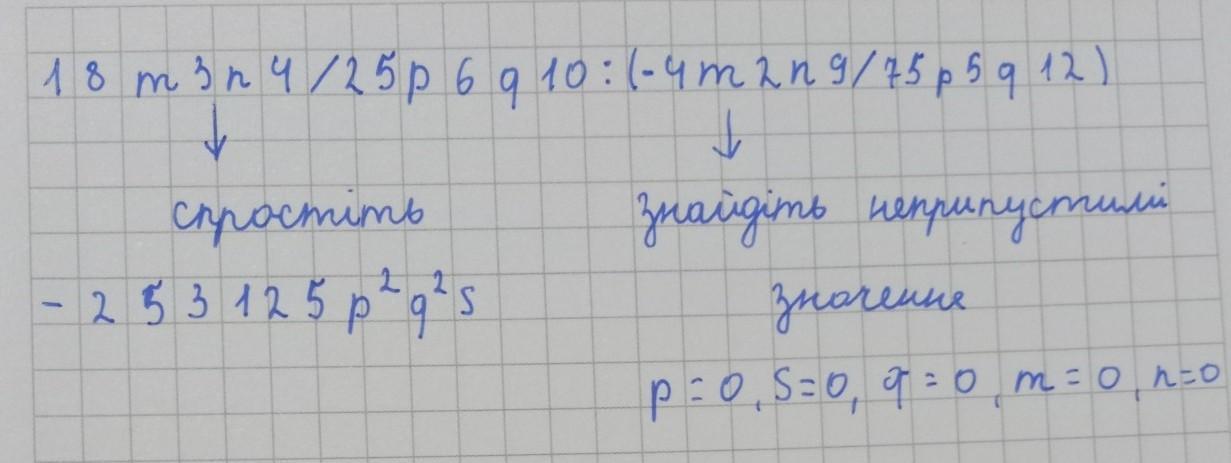 18m3n4/25p6q10:(-4m2n9/75p5q12)
спростіть знайдіть неприпустимі
-253125p²q²s значення
p=0, s=0, q=0, m=0, n=0